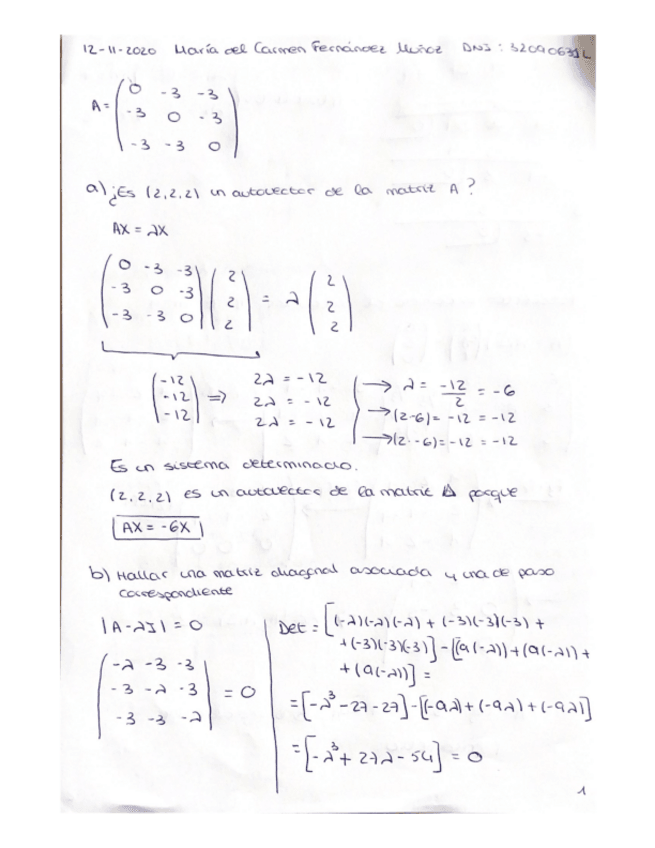 12-11-2020 María del Carmen Fernández Muñoz DNI: 32090631L
A = ( 0 -3 -3
-3 0 -3
-3 -3 0 )
a) ¿Es (2,2,2) un autovector de la matriz A?
AX = λX
( 0 -3 -3
-3 0 -3
-3 -3 0 ) ( 2
2
2 ) = λ ( 2
2
2 )
( -12
-12
-12 ) => 2λ = -12
2λ = -12
2λ = -12
→ λ = -12/2 = -6
→ (2·-6) = -12 = -12
→ (2·-6) = -12 = -12
Es un sistema determinado.
(2,2,2) es un autovector de la matriz A porque
AX = -6X
b) Hallar una matriz diagonal asociada y una de paso
correspondiente
|A-λI| = 0
( -λ -3 -3
-3 -λ -3
-3 -3 -λ ) = 0
Det = [(-λ)(-λ)(-λ) + (-3)(-3)(-3) +
+(-3)(-3)(-3)] - [(9(-λ)) + (9(-λ)) +
+ (9(-λ))] =
= [-λ³ - 27 - 27] - [(-9λ) + (-9λ) + (-9λ)]
= [-λ³ + 27λ - 54] = 0
1